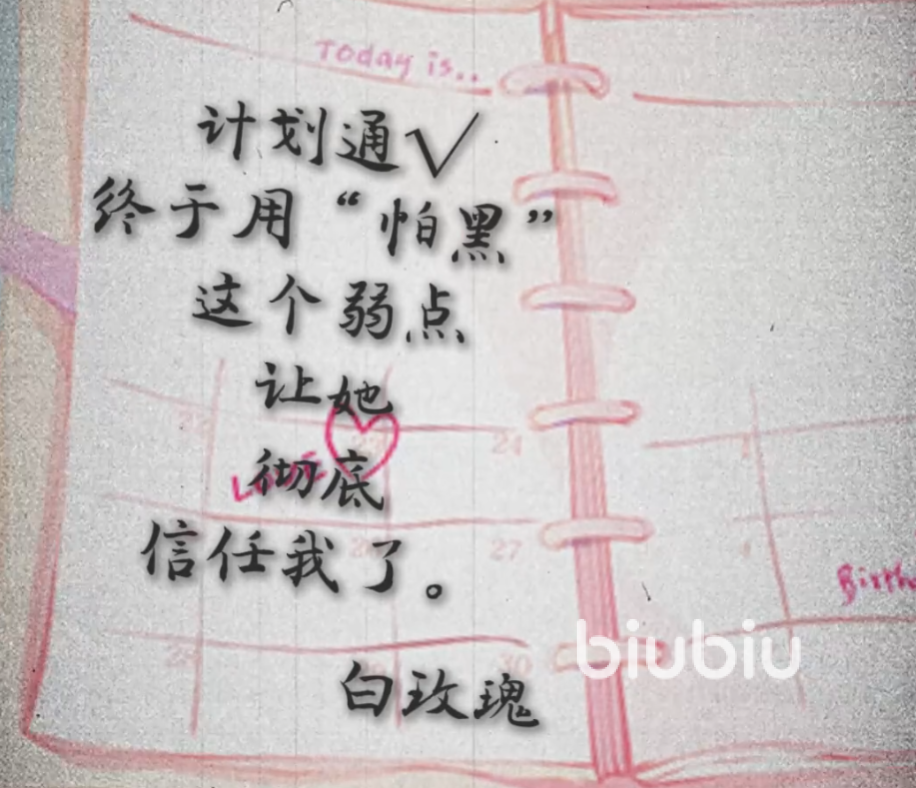 Today is..
计划通√
终于用“怕黑”
这个弱点
让她
彻底
信任我了。
白玫瑰
24
27
30
biubiu